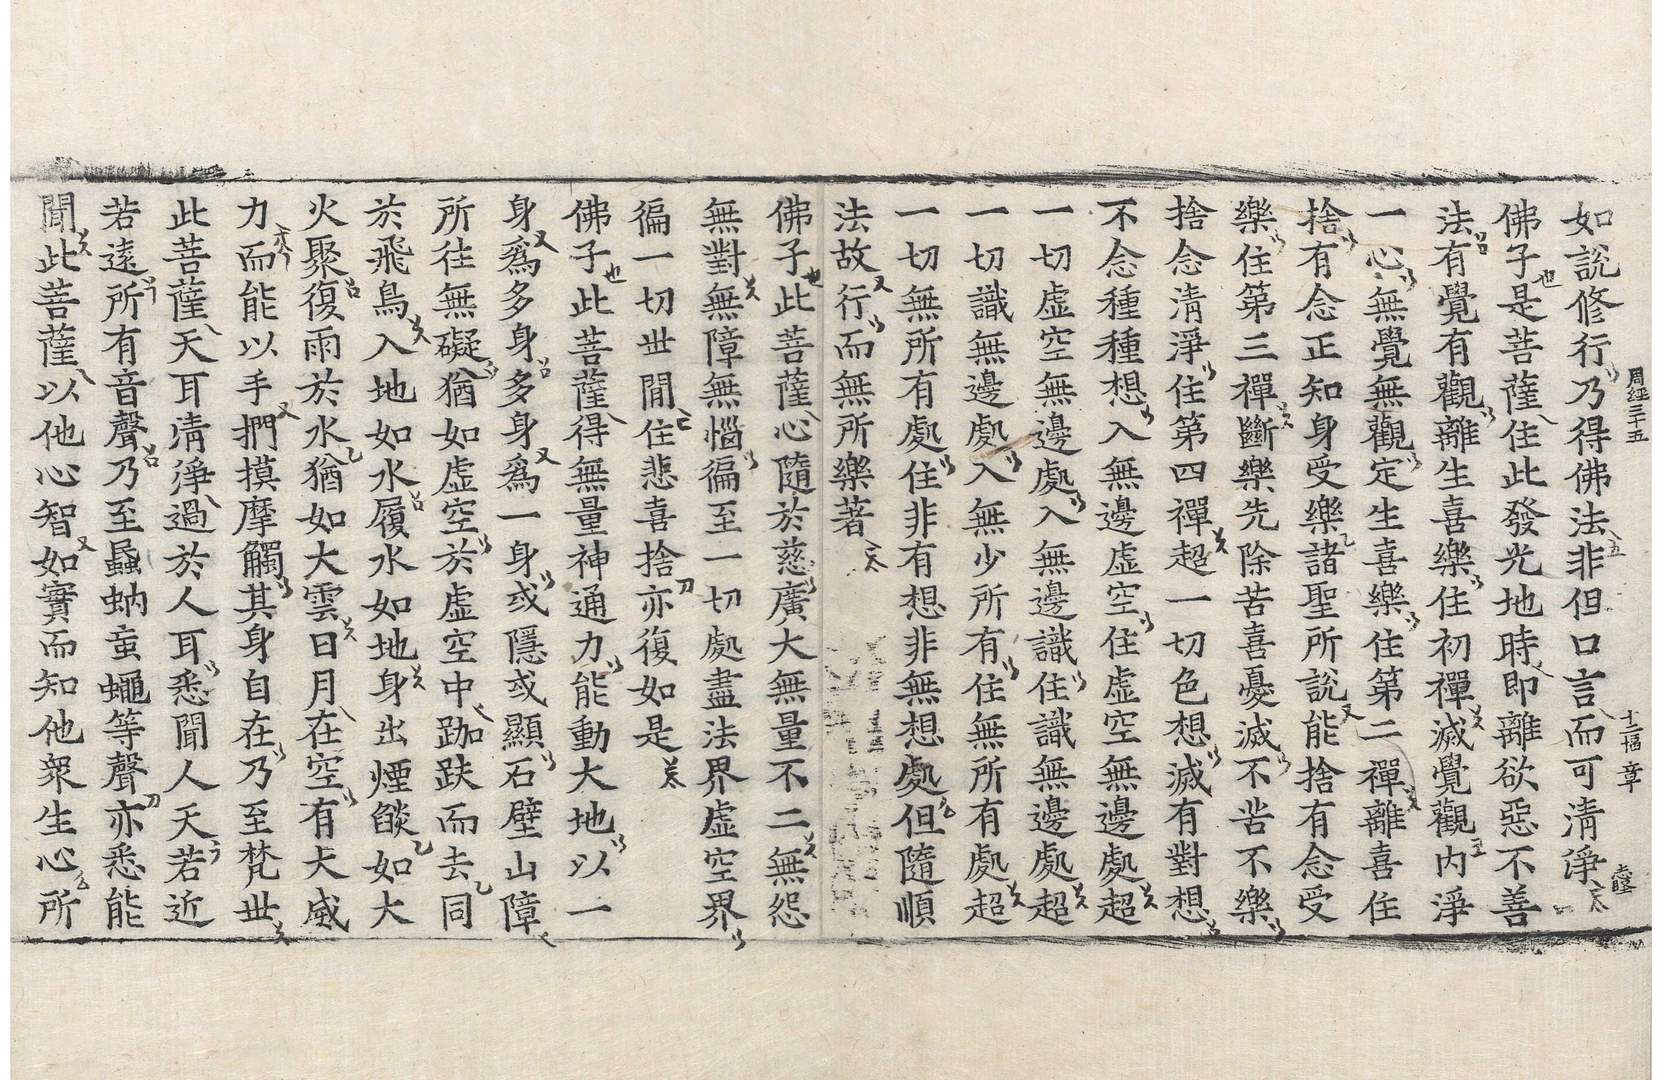 周經三十五 十二幅 章
如說修行乃得佛法非但口言而可清淨
佛子是菩薩住此發光地時即離欲惡不善
法有覺有觀離生喜樂住初禪滅覺觀內淨
一心無覺無觀定生喜樂住第二禪離喜住
捨有念正知身受樂諸聖所說能捨有念受
樂住第三禪斷樂先除苦喜憂滅不苦不樂
捨念清淨住第四禪超一切色想滅有對想
不念種種想入無邊虛空住虛空無邊處超
一切虛空無邊處入無邊識住識無邊處超
一切識無邊處入無少所有住無所有處超
一切無所有處住非有想非無想處但隨順
法故行而無所樂著
佛子此菩薩心隨於慈廣大無量不二無怨
無對無障無惱徧至一切處盡法界虛空界
徧一切世間住悲喜捨亦復如是
佛子此菩薩得無量神通力能動大地以一
身爲多身多身爲一身或隱或顯石壁山障
所往無礙猶如虛空於虛空中跏趺而去同
於飛鳥入地如水履水如地身出煙燄如大
火聚復雨於水猶如大雲日月在空有大威
力而能以手捫摸摩觸其身自在乃至梵世
此菩薩天耳清淨過於人耳悉聞人天若近
若遠所有音聲乃至蟁蚋䖟蠅等聲亦悉能
聞此菩薩以他心智如實而知他眾生心所